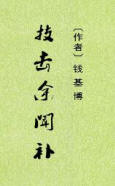 技击余闻补
〔作者〕钱基博